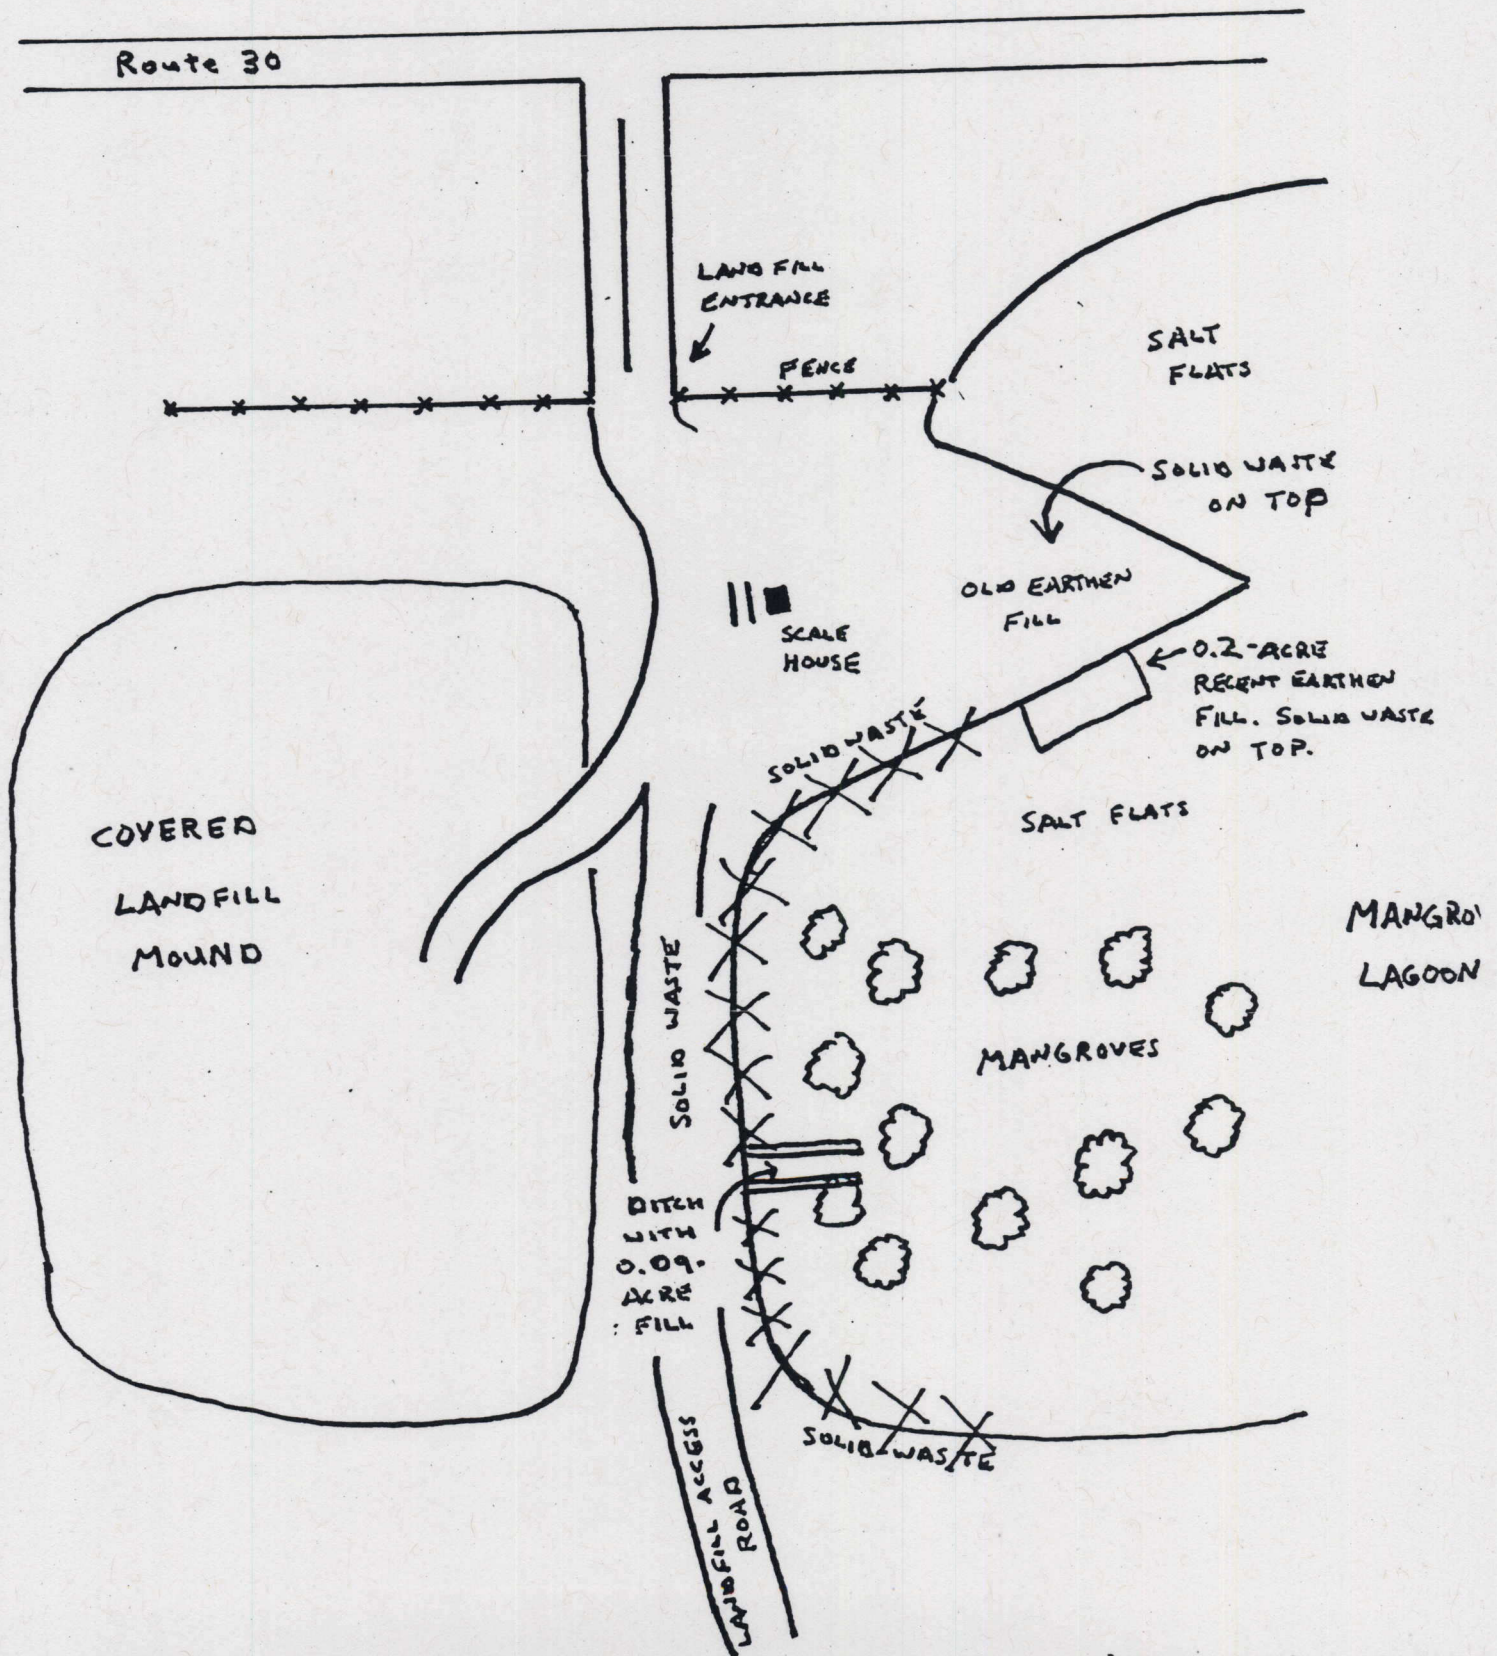 Route 30
LANDFILL
ENTRANCE
FENCE
SALT
FLATS
SOLID WASTE
ON TOP
OLD EARTHEN
FILL
SCALE
HOUSE
0.2-ACRE
RECENT EARTHEN
FILL. SOLID WASTE
ON TOP.
SOLID WASTE
SALT FLATS
COVERED
LANDFILL
MOUND
MANGRO
LAGOON
SOLID WASTE
MANGROVES
DITCH
WITH
0.09-
ACRE
FILL
SOLID WASTE
LANDFILL ACCESS
ROAD